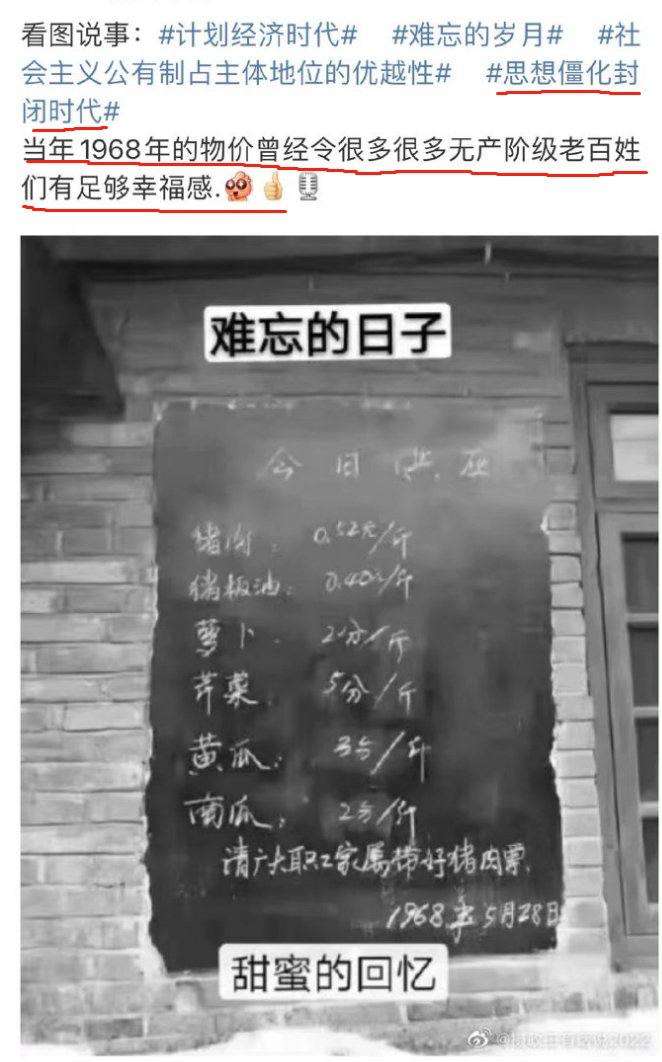 看图说事：#计划经济时代# #难忘的岁月# #社
会主义公有制占主体地位的优越性# #思想僵化封
闭时代#
当年1968年的物价曾经令很多很多无产阶级老百姓
们有足够幸福感.
难忘的日子
今日供应
猪肉：0.52元/斤
猪板油：0.40元/斤
萝卜 2分/斤
芹菜 5分/斤
黄瓜：3分/斤
南瓜：2分/斤
请广大职工家属带好猪肉票
1968年5月28日
甜蜜的回忆